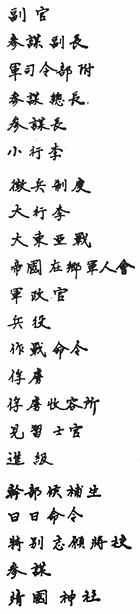 副官
参謀副長
軍司令部附
参謀總長
参謀長
小行李
徴兵制度
大行李
大東亞戰
帝國在鄉軍人會
軍政官
兵役
作戰命令
俘虜
俘虜收容所
見習士官
進級
幹部候補生
日日命令
特別志願將校
参謀
靖國神社